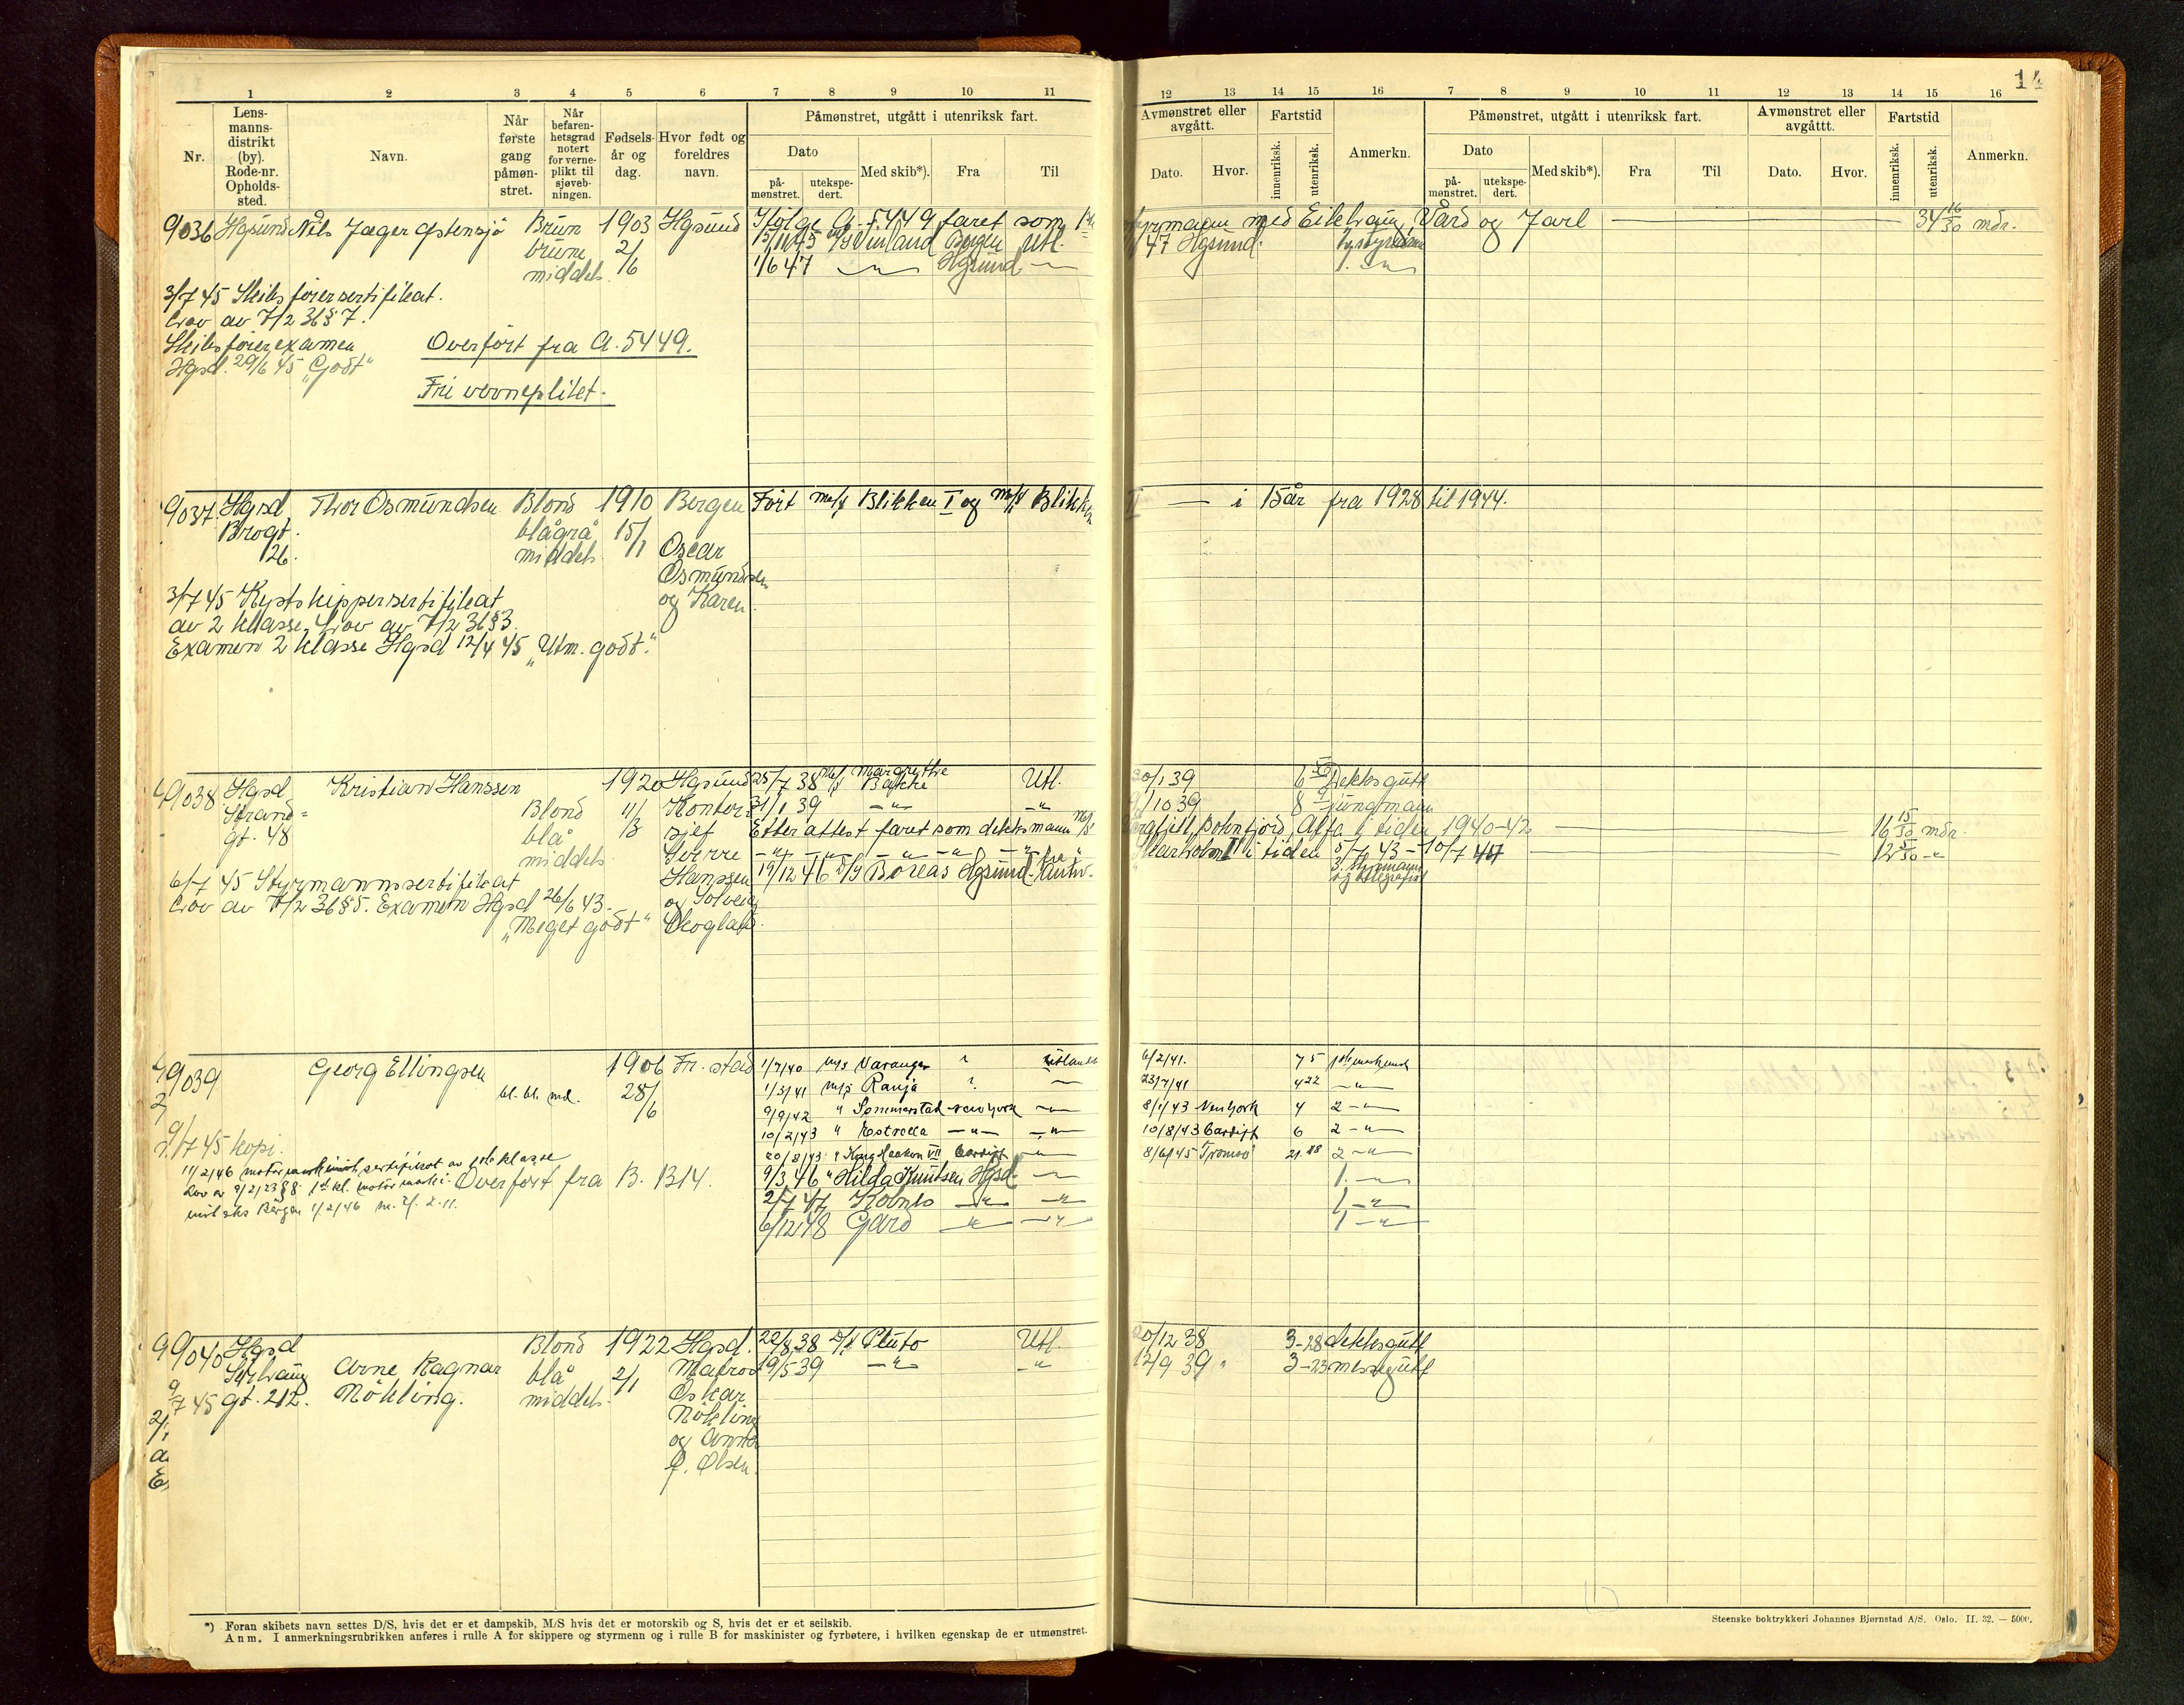 14
1 2 3 4 5 6 7 8 9 10 11
12 13 14 15 16 7 8 9 10 11 12 13 14 15 16
Nr.
Lens-
manns-
distrikt
(by).
Rode-nr.
Opholds-
sted.
Navn.
Når
første
gang
påmøn-
stret.
Når
befaren-
hetsgrad
notert
for verne-
plikt til
sjøveb-
ningen.
Fødsels-
år og
dag.
Hvor født og
foreldres
navn.
Påmønstret, utgått i utenriksk fart.
Dato
på-
mønstret.
utekspe-
dert.
Med skib*).
Fra
Til
Avmønstret eller
avgått.
Dato.
Hvor.
Fartstid
innenriksk.
utenriksk.
Anmerkn.
Påmønstret, utgått i utenriksk fart.
Dato
på-
mønstret.
utekspe-
dert.
Med skib*).
Fra
Til
Avmønstret eller
avgåttt.
Dato.
Hvor.
Fartstid
innenriksk.
utenriksk.
Anmerkn.
9036 Hgsund Nils Jæger Østensjø Brun 1903 Hgsund Ifølge A-5449 faret som 1ste styrmann med Eikhaug, Vård og Jarl 34 16/30 mdr.
brune 2/6 13/11 45 Vinland Bergen Utl. 47 Hgsund.
middels 1/6 47 -"- Hgsund -"- 1. -"-
3/7 45 Skibsførersertifikat.
Lov av 7/2 36 § 7.
Skibsførerexamen Overført fra A. 5449.
Hgsd. 29/6 45 „Godt"
Fri verneplikt.
9037 Hgsd Thor Osmundsen Blond 1910 Bergen Ført M/S Blikken I og M/S Blikken II — i 15 år fra 1928 til 1944.
Brogt. blågrå 15/1
26. middels Oscar
Osmundsen
og Karen.
3/7 45 Kystskippersertifikat
av 2 klasse. Lov av 7/2 36 § 3.
Examen 2 klasse Hgsd 12/4 45 „Utm. godt."
9038 Hgsd Kristian Hanssen 1920 Hgsund 25/7 38 M/S Margrethe Bakke Utl. 30/1 39 6 Dekksgutt
Strand- Blond 11/3 Kontor- 31/1 39 -"- -"- 10 39 8 Jungmann
gt. 48 blå sjef Etter attest faret som dekksmann M/S Boknfjord, Alfa i tiden 1940-42 16 15/30 mdr.
middels Sverre -"- -"- -"- -"- -"- i tiden 5/7 43 - 10/7 44 12 5/30 -"-
6/7 45 Styrmannssertifikat Hanssen 17/12 46 D/S Boreas Hgsund. Antw. 3. styrmann og telegrafist
Lov av 7/2 36 § 5. Examen Hgsd 26/6 43. og Solveig
„Meget godt" Skogland.
9039 Georg Ellingsen 1906 Fr. stad 1/7/40 M/S Varanger ? Utlandet 6/2/41. 7 5
bl. bl. md. 28/6 1/3/41 M/S Ranja ? -"- 23/7/41 4 22 -"-
9/9/42 " Sommerstad New York -"- 8/1/43 New York 4 2 -"-
10/2/43 " Kostrella -"- -"- 10/8/43 Cardiff 6 2 -"-
9/7 45 Kopi. 20/8/43 " Kong Haakon VII Cardiff -"- 8/6/45 Tromsø 21.18 2 -"-
11/2/46 motormaskinist sertifikat av 1ste klasse Overført fra B. 1314. 9/3 46 " Hilda Knutsen Hgsd. -"- 1. -"-
Lov av 9/2/23 § 8. 1ste kl. motor maski- 2/7 47 Kobnlo -"- -"- 1. -"-
nist eks Bergen 1/2/46 6/12 48 Gard -"- -"- 1. -"-
9040 Hgsd Blond 1922 Hgsd. 22/8 38 D/S Pluto Utl. 20/12 38 3-28 dekksgutt
Arne Ragnar blå 2/1 Matros 19/5 39 -"- -"- 12/9 39 " 3-23 messegutt
9/7 45 gt. 212. Nökling. middels. Oskar
Nökling
og Anna
f. Olsen.
*) Foran skibets navn settes D/S, hvis det er et dampskib, M/S hvis det er motorskib og S, hvis det er et seilskib.
Anm. I anmerkningsrubrikken anføres i rulle A for skippere og styrmenn og i rulle B for maskinister og fyrbøtere, i hvilken egenskap de er utmønstret.
Steenske boktrykkeri Johannes Bjørnstad A/S. Oslo. II. 32. — 5000.